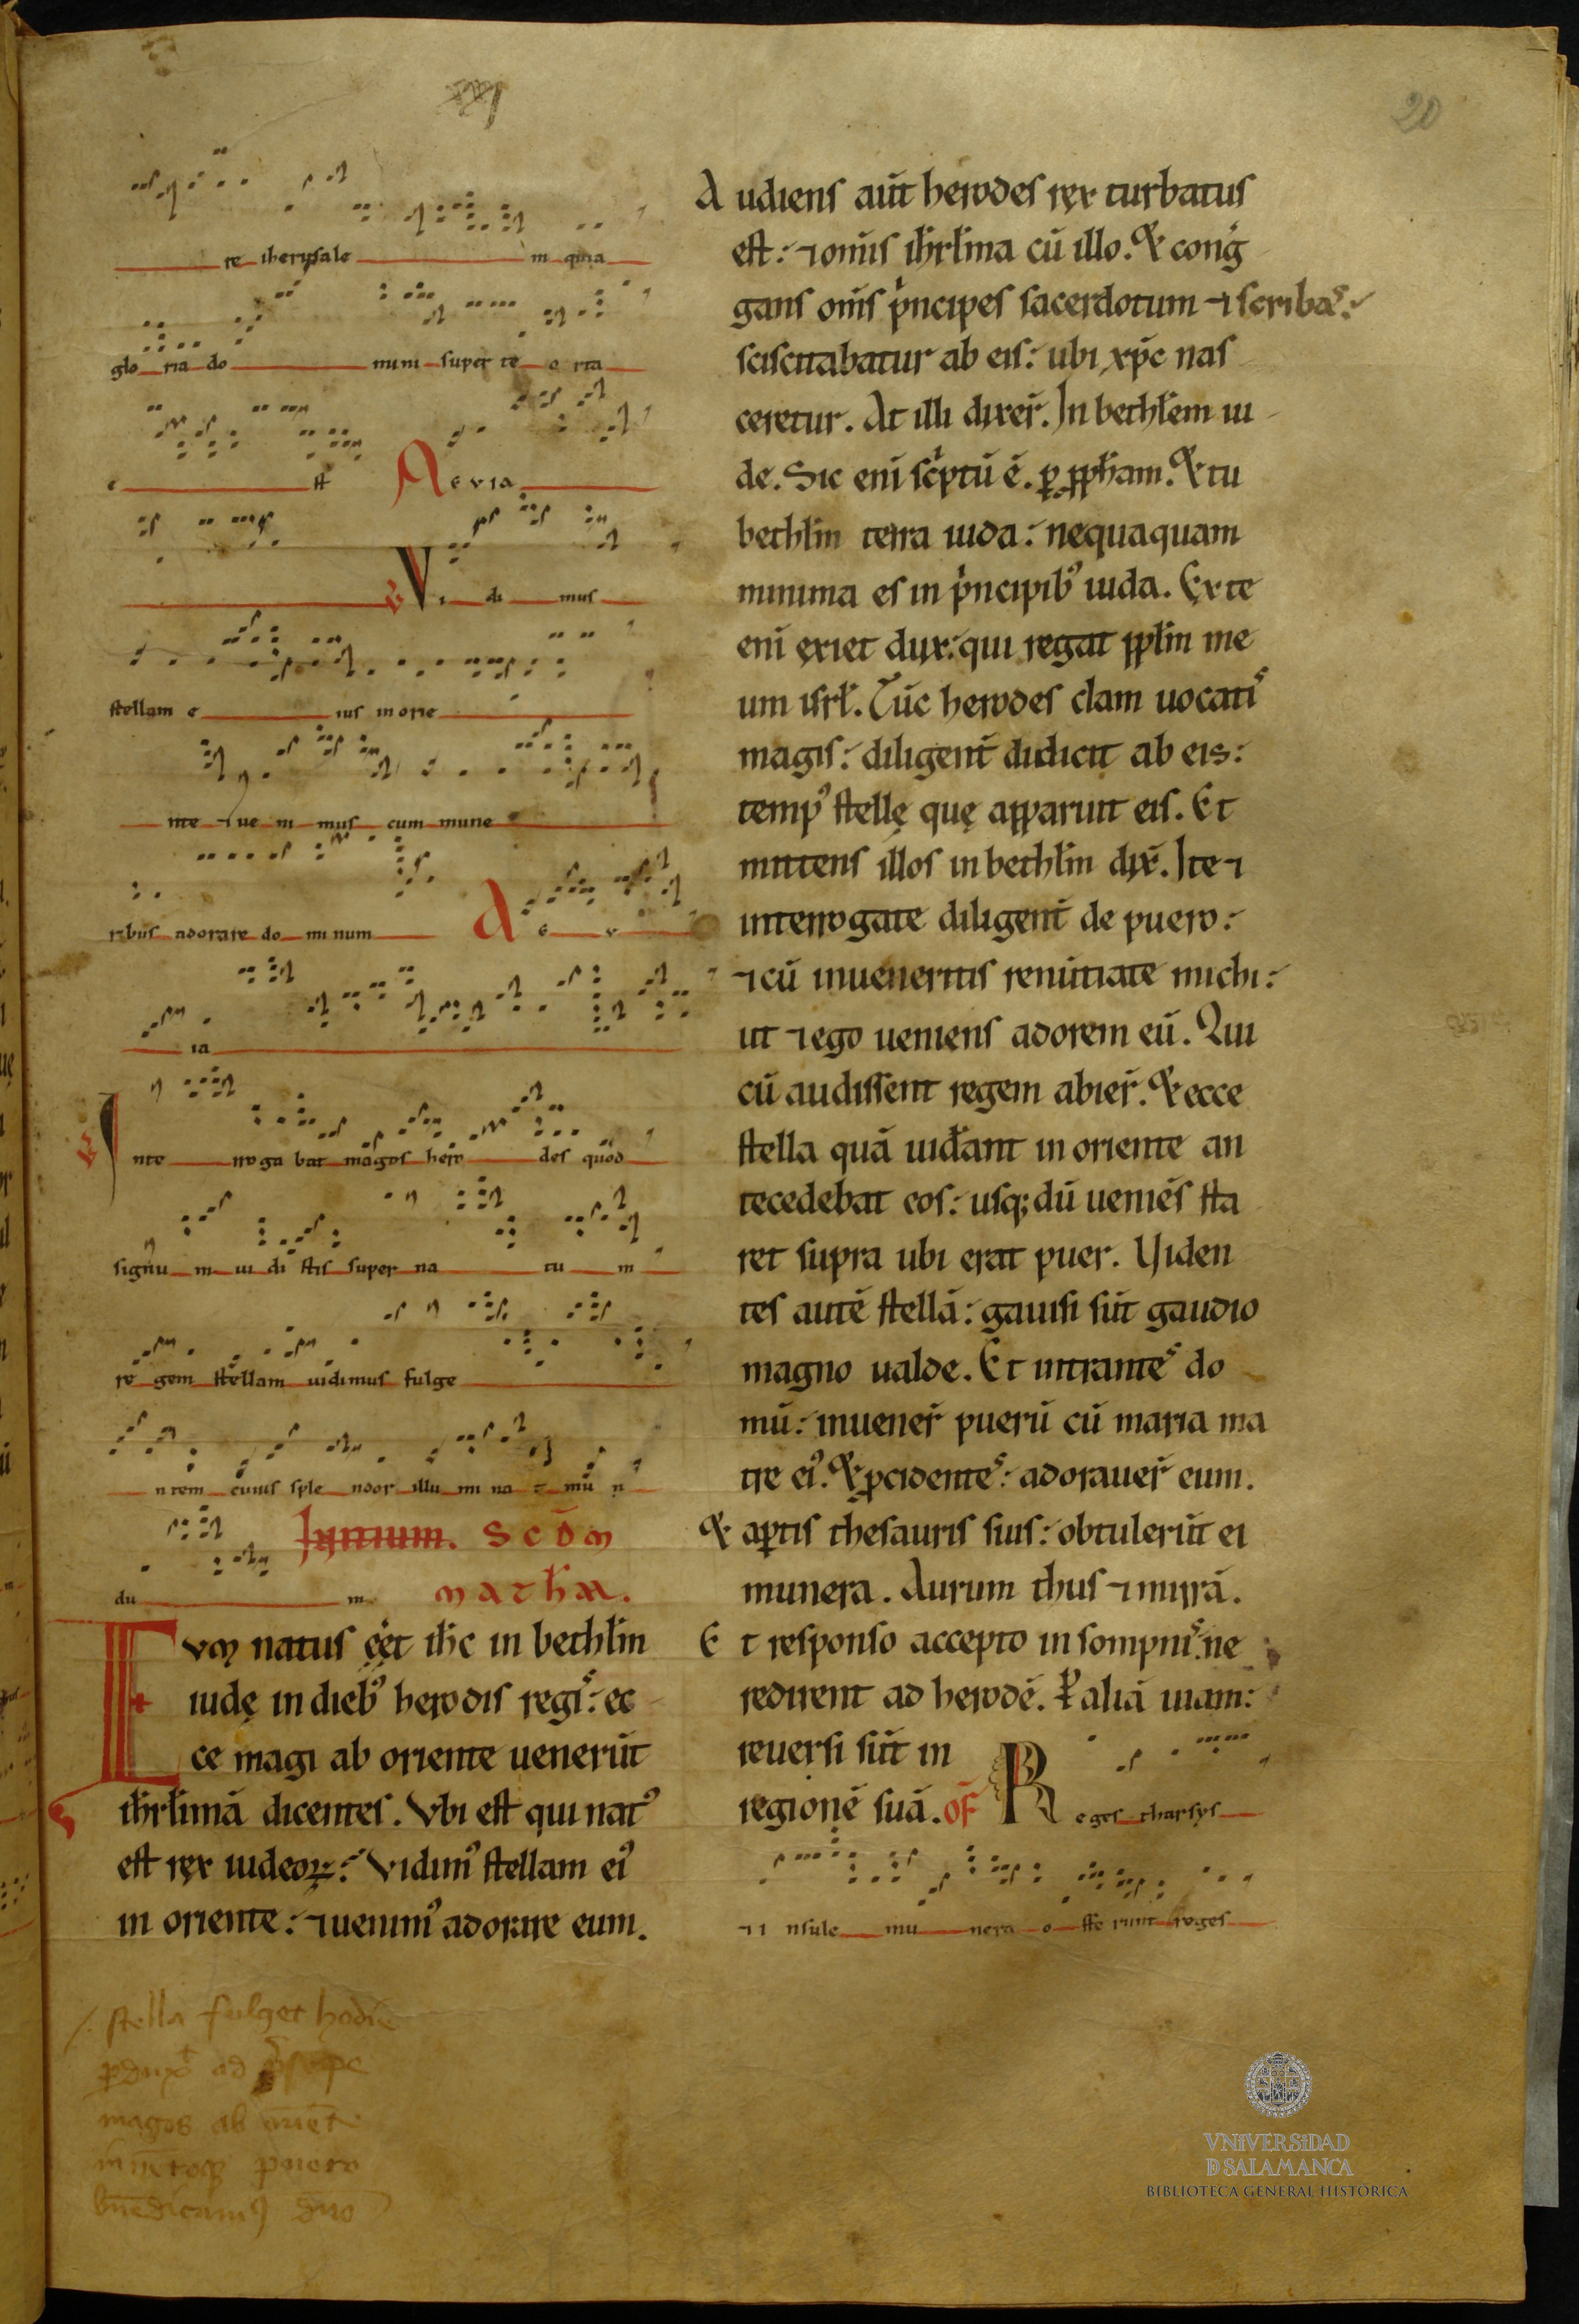 20
re iherusale m quia
glo ria do mini super te o rta
e st Aevia
V Vi di mus
stellam e ius in orie
nte ⁊ ue ni mus cum mune
ribus adorare do minum Ae v
ia
V Inte rroga bat magos hero des quod
signu m ui di stis super na tu m
re gem stellam uidimus fulge
ntem cuius sple ndor illu mi na t mu n
du m
Scd̄m
math̄m.
Cvm natus eēt ih̄c in bethlīm
iudę in dieb᾿ herodis regis: ec
ce magi ab oriente uenerūt
ih̄rlimā dicentes. Vbi est qui nat᾿
est rex iudeoꝝ: Vidim᾿ stellam ei᾿
in oriente: ⁊ uenim᾿ adorare eum.
Audiens aūt herodes rex turbatus
est: ⁊ om̄is ih̄rlima cū illo. Et cong̍
gans om̄s p̍ncipes sacerdotum ⁊ scribas:
sciscitabatur ab eis: ubi xp̄c nas
ceretur. At illi dixer̄. In bethlēem iu
de. Sic enī sc̍ptū ē. ꝑ ꝓph̄am. Et tu
bethlīm terra iuda: nequaquam
minima es in p̍ncipib᾿ iuda. Ex te
enī exiet dux: qui regat pplm̄ me
um isrl̄. Tūc herodes clam uocatis
magis: diligent̄ didicit ab eis:
temp᾿ stellę quę apparuit eis. Et
mittens illos in bethlīm dix̄. Ite ⁊
interrogate diligent̄ de puero:
⁊ cū inueneritis renūtiate michi:
ut ⁊ ego ueniens adorem eū. Qui
cū audissent regem abier̄. Et ecce
stella quā uid̄ant in oriente an
tecedebat eos: usq; dū ueniēs sta
ret supra ubi erat puer. Viden
tes autē stellā: gauisi sūt gaudio
magno ualde. Et intrantes do
mū: inuener̄ puerū cū maria ma
tre ei᾿. Et ꝓcidentes: adorauer̄ eum.
Et aꝑtis thesauris suis: obtulerūt ei
munera. Aurum thus ⁊ mirrā.
Et responso accepto in sompnis: ne
redirent ad herodē. ꝑ aliā uiam:
reuersi sūt in
regionē suā. of̄ Reges tharsys
⁊ i nsule mu nera o ffe runt reges
stella fulget hodie
ꝑdux̄ ad
magos ab oriēte
puero
bn̄edicam᾿ dn̄o
VNiVERSiDAD
D SALAMANCA
BIBLIOTECA GENERAL HISTÓRICA